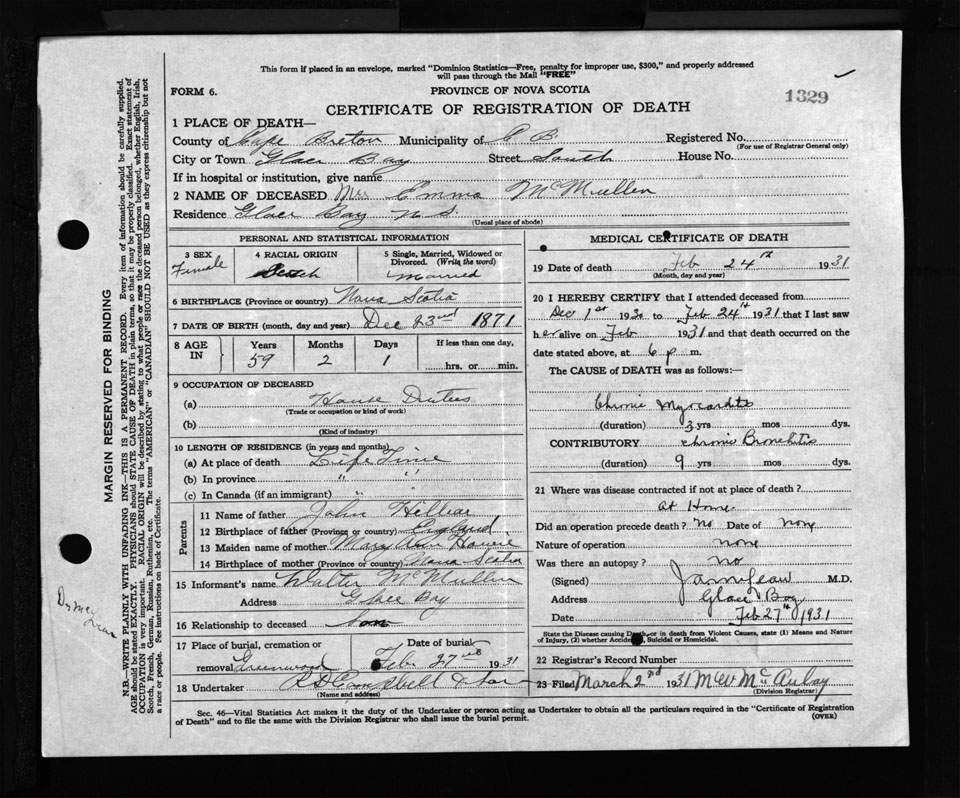 This form if placed in an envelope, marked "Dominion Statistics—Free, penalty for improper use, $300," and properly addressed
will pass through the Mail "FREE"
FORM 6.
PROVINCE OF NOVA SCOTIA
1329
CERTIFICATE OF REGISTRATION OF DEATH
1 PLACE OF DEATH—
County of Cape Breton Municipality of C B Registered No.
(For use of Registrar General only)
City or Town Glace Bay Street South House No.
If in hospital or institution, give name
2 NAME OF DECEASED Mrs Emma McMullen
Residence Glace Bay N S.
(Usual place of abode)
PERSONAL AND STATISTICAL INFORMATION
3 SEX Female
4 RACIAL ORIGIN Scotch
5 Single, Married, Widowed or Divorced. (Write the word) Married
6 BIRTHPLACE (Province or country) Nova Scotia
7 DATE OF BIRTH (month, day and year) Dec 23rd 1871
8 AGE IN Years 59 Months 2 Days 1 If less than one day, hrs. or min.
9 OCCUPATION OF DECEASED
(a) House Duties
(Trade or occupation or kind of work)
(b)
(Kind of industry)
10 LENGTH OF RESIDENCE (in years and months)
(a) At place of death Life Time
(b) In province " "
(c) In Canada (if an immigrant) " "
Parents
11 Name of father John Hilliar
12 Birthplace of father (Province or country) England
13 Maiden name of mother Mary Ann Howie
14 Birthplace of mother (Province or country) Nova Scotia
15 Informant's name Walter McMullen
Address Glace Bay
16 Relationship to deceased Son
17 Place of burial, cremation or removal Greenwood Date of burial Feb 27th 1931
18 Undertaker R D Campbell & Son
(Name and address)
MEDICAL CERTIFICATE OF DEATH
19 Date of death Feb 24th 1931
(Month, day and year)
20 I HEREBY CERTIFY that I attended deceased from
Dec 1st 1930 to Feb 24th 1931 that I last saw
her alive on Feb 1931 and that death occurred on
date stated above, at 6 p m.
The CAUSE of DEATH was as follows:—
Chronic Myocarditis
(duration) 3 yrs mos dys.
CONTRIBUTORY Chronic Bronchitis
(duration) 9 yrs mos. dys.
21 Where was disease contracted if not at place of death?
At Home
Did an operation precede death? No Date of none
Nature of operation none
Was there an autopsy? no
(Signed) M.D.
Address Glace Bay
Date Feb 27th 1931
State the Disease causing Death, or in death from Violent Causes, state (1) Means and Nature
of Injury, (2) whether Accidental, Suicidal or Homicidal.
22 Registrar's Record Number
23 Filed March 2nd 1931 McAulay
(Division Registrar)
Sec. 46—Vital Statistics Act makes it the duty of the Undertaker or person acting as Undertaker to obtain all the particulars required in the "Certificate of Registration
of Death" and to file the same with the Division Registrar who shall issue the burial permit.
(OVER)
MARGIN RESERVED FOR BINDING
N.B.—WRITE PLAINLY WITH UNFADING INK—THIS IS A PERMANENT RECORD. Every item of information should be carefully supplied.
AGE should be stated EXACTLY. PHYSICIANS should STATE CAUSE OF DEATH in plain terms, so that it may be properly classified. Exact statement of
OCCUPATION is very important. RACIAL ORIGIN will be described by stating to what people or race the deceased person belonged, whether English, Irish,
Scotch, French, German, Russian, Ruthenian, etc. The terms "AMERICAN" or "CANADIAN" SHOULD NOT BE USED as they express citizenship but not
a race or people. See instructions on back of Certificate.